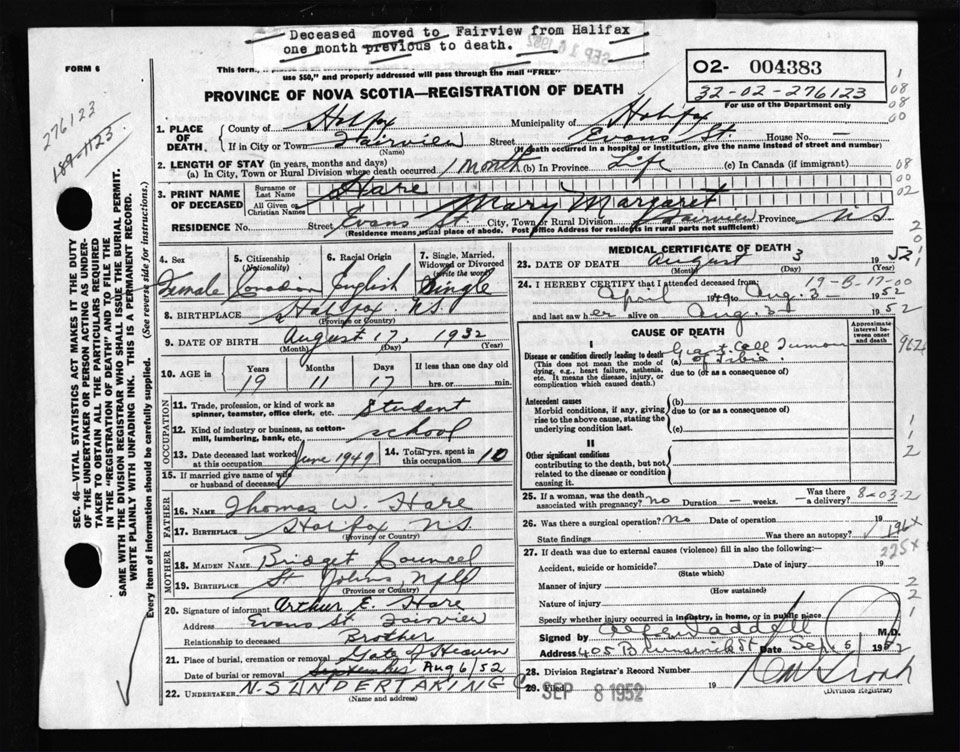 Deceased moved to Fairview from Halifax
one month previous to death.
SEP 1952
FORM 6
This form,
use $50," and properly addressed will pass through the mail "FREE"
PROVINCE OF NOVA SCOTIA—REGISTRATION OF DEATH
02- 004383
32-02-276123
For use of the Department only
276123
189-1123
1. PLACE OF DEATH. County of Halifax Municipality of Halifax
If in City or Town Fairview (Name) Street Evans St. House No. —
(If death occurred in a hospital or institution, give the name instead of street and number)
2. LENGTH OF STAY (in years, months and days)
(a) In City, Town or Rural Division where death occurred 1 Month (b) In Province Life (c) In Canada (if immigrant)
3. PRINT NAME OF DECEASED Surname or Last Name Hare
All Given or Christian Names Mary Margaret
RESIDENCE No. Street Evans St. City, Town or Rural Division Fairview Province N.S.
(Residence means usual place of abode. Post Office Address for residents in rural parts not sufficient)
SEC. 46—VITAL STATISTICS ACT MAKES IT THE DUTY
OF THE UNDERTAKER OR PERSON ACTING AS UNDER-
TAKER TO OBTAIN ALL THE PARTICULARS REQUIRED
IN THE "REGISTRATION OF DEATH" AND TO FILE THE
SAME WITH THE DIVISION REGISTRAR WHO SHALL ISSUE THE BURIAL PERMIT.
WRITE PLAINLY WITH UNFADING INK. THIS IS A PERMANENT RECORD.
Every item of information should be carefully supplied. (See reverse side for instructions.)
4. Sex Female
5. Citizenship (Nationality) Canadian
6. Racial Origin English
7. Single, Married, Widowed or Divorced (write the word) Single
8. BIRTHPLACE Halifax N.S.
(Province or Country)
9. DATE OF BIRTH August 17, 1932
(Month) (Day) (Year)
10. AGE in Years 19 Months 11 Days 17 If less than one day old
hrs. or min.
OCCUPATION
11. Trade, profession, or kind of work as spinner, teamster, office clerk, etc. Student
12. Kind of industry or business, as cotton-mill, lumbering, bank, etc. school
13. Date deceased last worked at this occupation June 1949
14. Total yrs. spent in this occupation 10
15. If married give name of wife or husband of deceased
FATHER
16. NAME Thomas W. Hare
17. BIRTHPLACE Halifax N.S.
(Province or Country)
MOTHER
18. MAIDEN NAME Bridget
19. BIRTHPLACE St. Johns, Nfld
(Province or Country)
20. Signature of informant Arthur E. Hare
Address Evans St. Fairview
Relationship to deceased Brother
21. Place of burial, cremation or removal Gate of Heaven
Date of burial or removal September Aug 6/52
22. UNDERTAKER N.S UNDERTAKING C
(Name and address)
MEDICAL CERTIFICATE OF DEATH
23. DATE OF DEATH August 3 1952
(Month) (Day) (Year)
24. I HEREBY CERTIFY that I attended deceased from: 19-B-17-00
April 1949 to Aug. 3 - 1952
and last saw her alive on Aug. 3d 1952
CAUSE OF DEATH
Approximate interval between onset and death
Disease or condition directly leading to death
(This does not mean the mode of dying, e.g., heart failure, asthenia, etc. It means the disease, injury, or complication which caused death.)
(a) Giant Cell Tumour of Tibia
due to (or as a consequence of)
Antecedent causes
Morbid conditions, if any, giving rise to the above cause, stating the underlying condition last.
(b)
due to (or as a consequence of)
(c)
II
Other significant conditions
contributing to the death, but not related to the disease or condition causing it.
25. If a woman, was the death associated with pregnancy? no Duration — weeks. Was there a delivery? —
8-03-2
26. Was there a surgical operation? No Date of operation 19
State findings Was there an autopsy?
196X
225X
27. If death was due to external causes (violence) fill in also the following:—
Accident, suicide or homicide? Date of injury 19
(State which)
Manner of injury
(How sustained)
Nature of injury
Specify whether injury occurred in industry, in home, or in public place
Signed by Waddell M.D.
Address 405 Brunswick St Date Sept 6 1952
28. Division Registrar's Record Number
29. Filed SEP 8 1952 19
(Division Registrar)